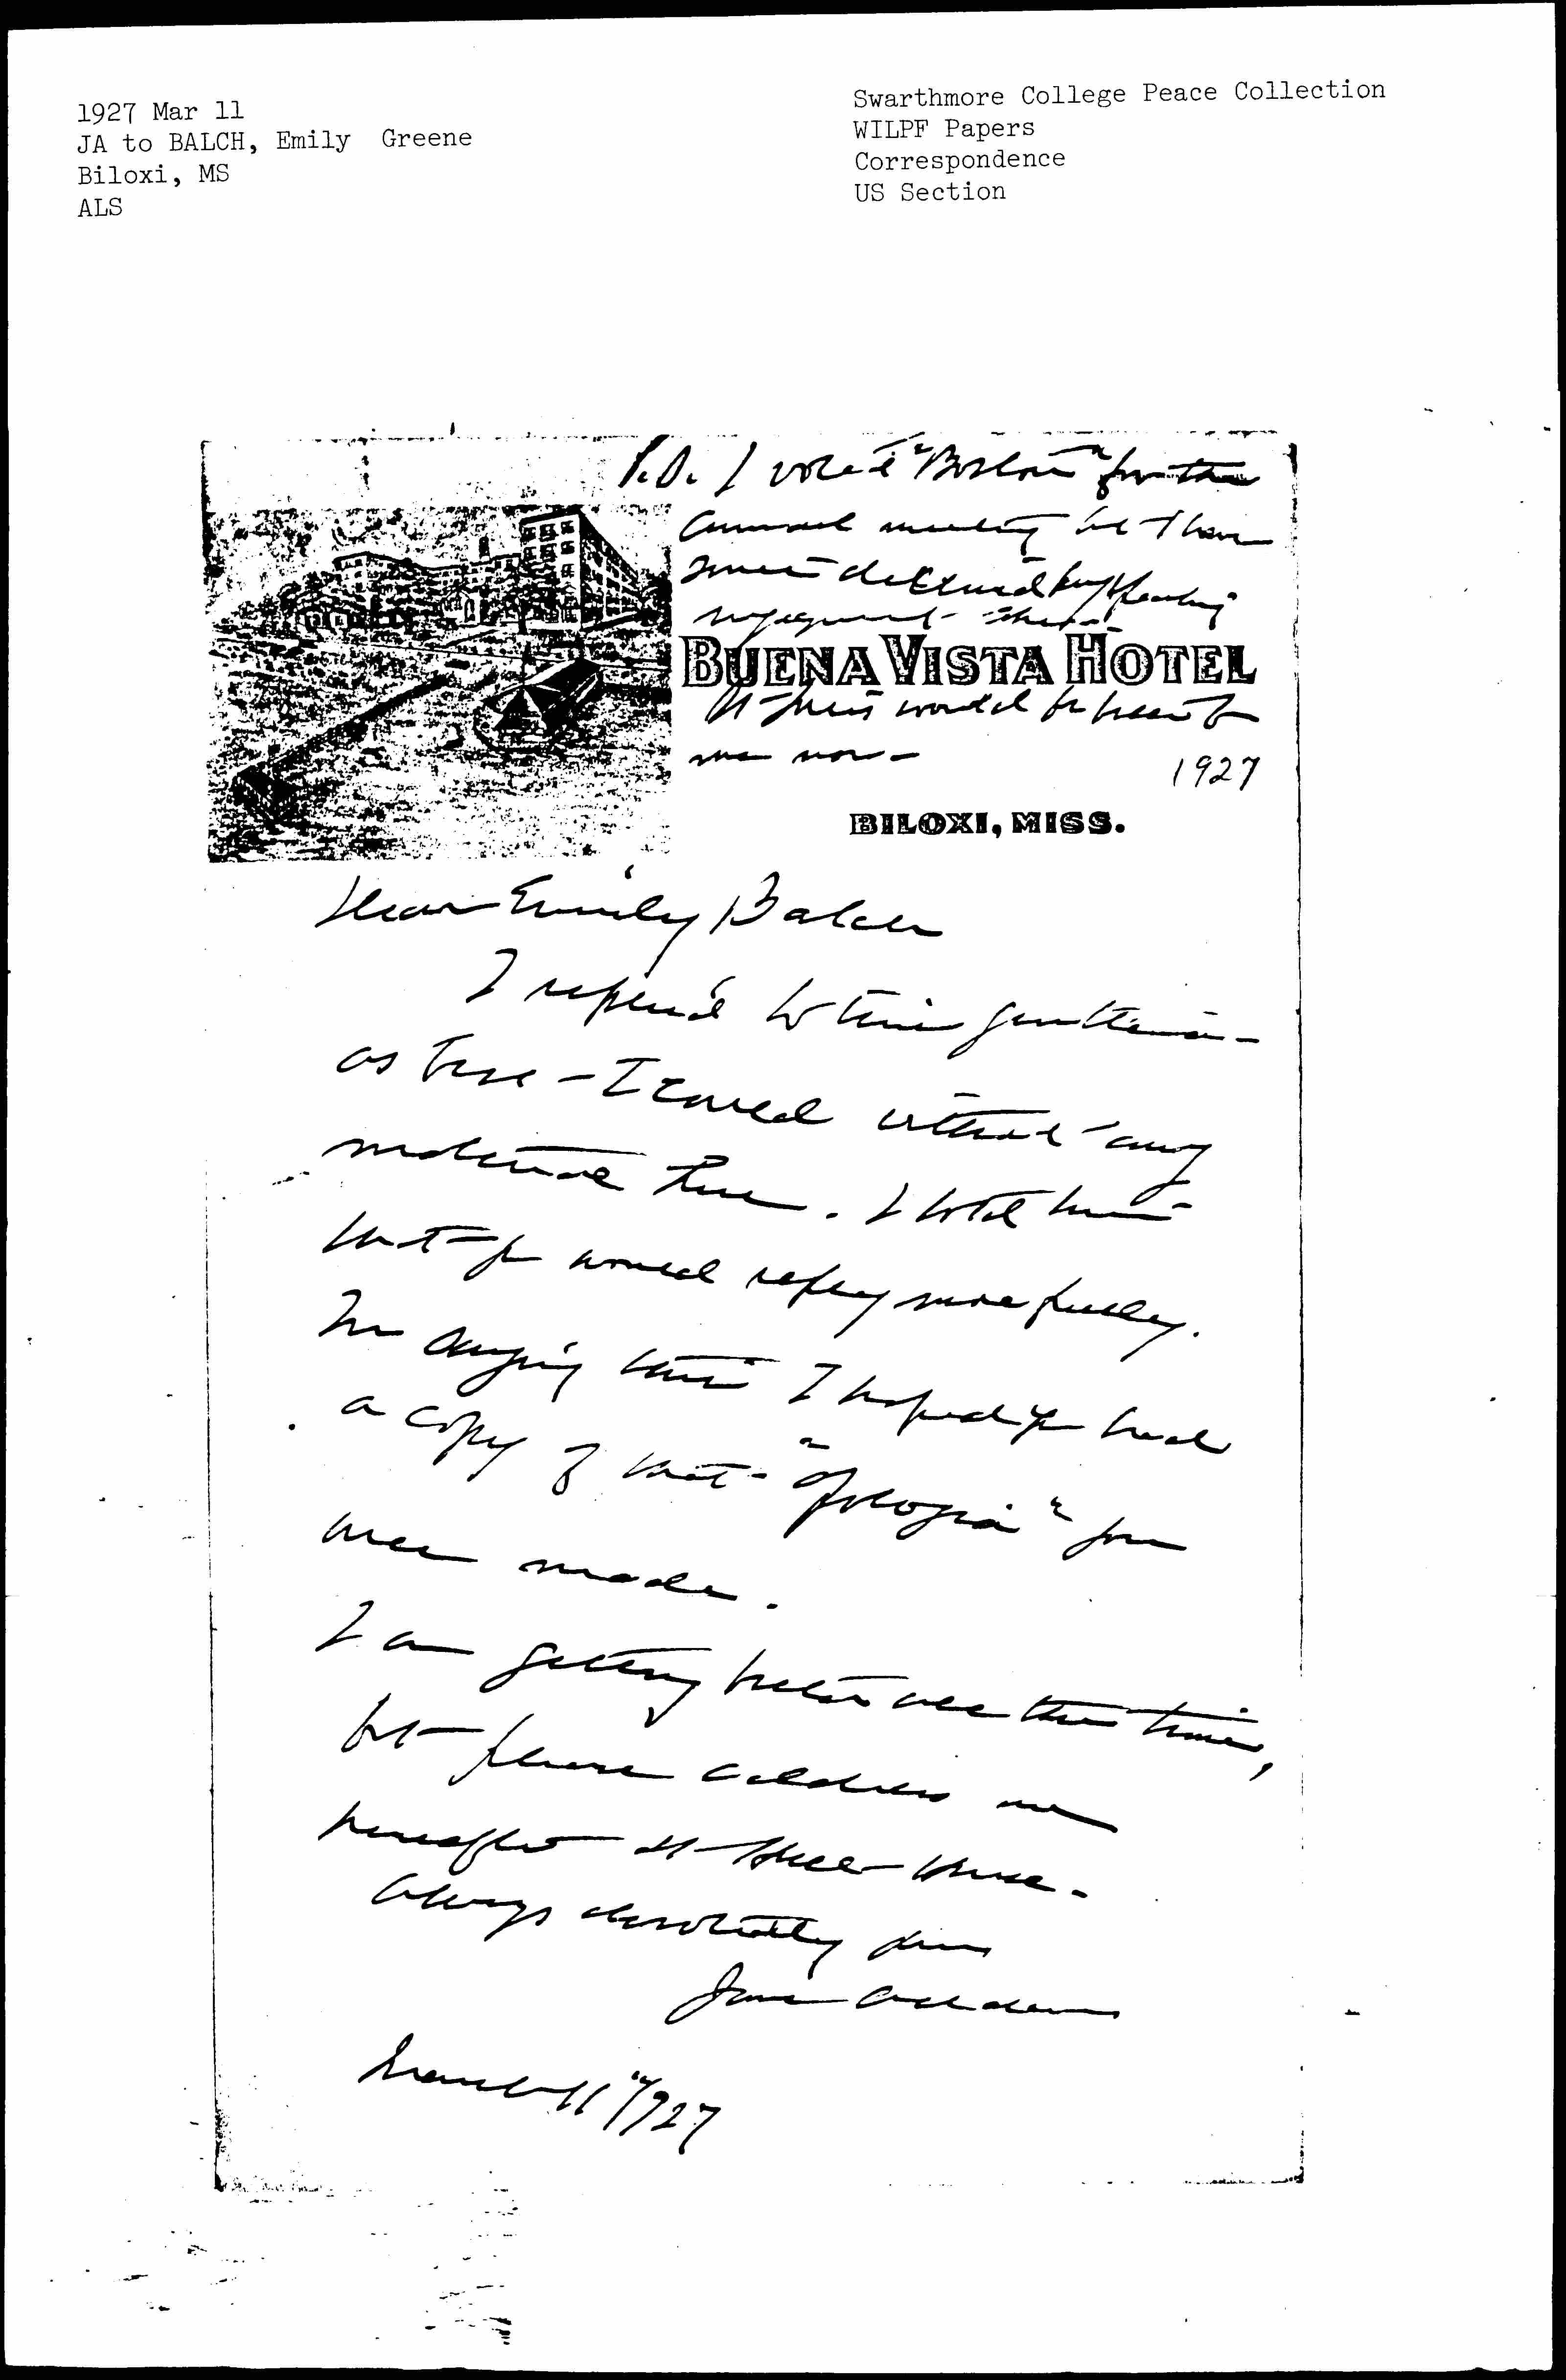 1927 Mar 11
JA to BALCH, Emily Greene
Biloxi, MS
ALS
Swarthmore College Peace Collection
WILPF Papers
Correspondence
US Section
P.S. I voted "Boston" for the
annual meeting but I have
since declined my speaking
engagement there
BUENA VISTA HOTEL
It would be best for
me now -
1927
BILOXI, MISS.
Dear Emily Balch
I replied to this gentleman
as best I could without any
material here. I told him
that you would reply more fully.
In doing this I hoped you had
a copy of that "apologia" you
once made.
I am getting better all the time,
but please address me
hereafter at Hull-House.
Always devotedly yours
Jane Addams
March 11" 1927